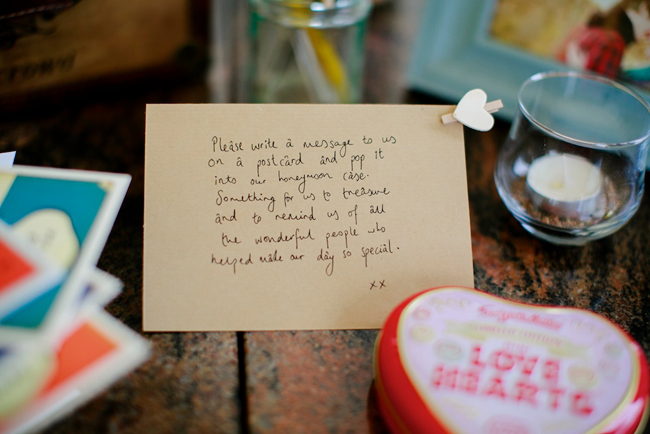 Please write a message to us
on a postcard and pop it
into our honeymoon case.
Something for us to treasure
and to remind us of all
the wonderful people who
helped make our day so special.
xx
LOVE
HEARTS